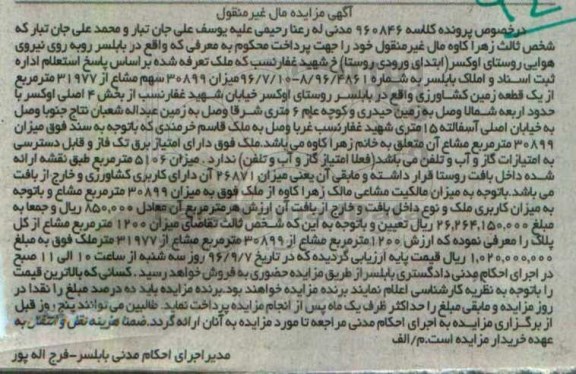 آگهی مزایده مال غیرمنقول
درخصوص پرونده کلاسه ۹۶۰۸۴۶ مدنی له رعنا رحیمی علیه یوسف علی جان تبار و محمد علی جان تبار که
شخص ثالث زهرا کاوه مال غیرمنقول خود را جهت پرداخت محکوم به معرفی که واقع در بابلسر روبه روی نیروی
هوایی روستای اوکسر (ابتدای ورودی روستا) خ شهید غفارنسب که ملک تعرفه شده براساس پاسخ استعلام اداره
ثبت اسناد و املاک بابلسر به شماره ۸/۹۶/۴۸۶۱-۹۶/۷/۱۰ میزان ۳۰۸۹۹ سهم مشاع از ۳۱۹۷۷ مترمربع
از یک قطعه زمین کشاورزی واقع در بابلسر روستای اوکسر خیابان شهید غفارنسب از بخش ۴ اصلی اوکسر با
حدود اربعه شمالا وصل به زمین حیدری و کوچه عام ۶ متری شرقا وصل به زمین عبداله شعبان نتاج جنوبا وصل
به خیابان اصلی آسفالته ۱۵ متری شهید غفارنسب غربا وصل به ملک قاسم خرمندی که باتوجه به سند فوق میزان
۳۰۸۹۹ مترمربع مشاع آن متعلق به خانم زهرا کاوه می باشد. ملک فوق دارای امتیاز برق تک فاز و قابل دسترسی
به امتیازات گاز و آب و تلفن می باشد (فعلا امتیاز گاز و آب و تلفن) ندارد. میزان ۵۱۰۶ مترمربع طبق نقشه ارائه
شده داخل بافت روستا قرار داشته و مابقی آن یعنی میزان ۲۶۸۷۱ آن دارای کاربری کشاورزی و خارج از بافت
می باشد. باتوجه به میزان مالکیت مشاعی مالک زهرا کاوه از ملک فوق به میزان ۳۰۸۹۹ مترمربع مشاع و باتوجه
به میزان کاربری ملک و نوع داخل بافت و خارج از بافت آن ارزش هر مترمربع آن معادل ۸۵۰,۰۰۰ ریال و جمعا به
مبلغ ۲۶,۲۶۴,۱۵۰,۰۰۰ ریال تعیین و باتوجه به این که شخص ثالث تقاضای میزان ۱۲۰۰ مترمربع مشاع از کل
پلاک را معرفی نموده که ارزش ۱۲۰۰ مترمربع مشاع از ۳۰۸۹۹ مترمربع مشاع از ۳۱۹۷۷ متر ملک فوق به مبلغ
۱,۰۲۰,۰۰۰,۰۰۰ ریال قیمت پایه ارزیابی گردیده که در تاریخ ۹۶/۹/۷ روز سه شنبه از ساعت ۱۰ الی ۱۱ صبح
در اجرای احکام مدنی دادگستری بابلسر از طریق مزایده حضوری به فروش خواهد رسید. کسانی که بالاترین قیمت
را باتوجه به نظریه کارشناسی اعلام نمایند برنده مزایده خواهند بود. برنده مزایده باید ده درصد مبلغ را نقدا در
روز مزایده و مابقی مبلغ را حداکثر ظرف یک ماه پس از انجام مزایده پرداخت نماید. طالبین می توانند پنج روز قبل
از برگزاری مزایده به اجرای احکام مدنی مراجعه تا مورد مزایده به آنان ارائه گردد. ضمنا هزینه نقل و انتقال به
عهده خریدار مزایده است. م/الف
مدیر اجرای احکام مدنی بابلسر-فرج اله پور